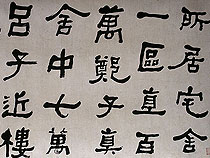 所居宅舍
一區直百
萬鄭子真
舍中七萬
呂子近樓